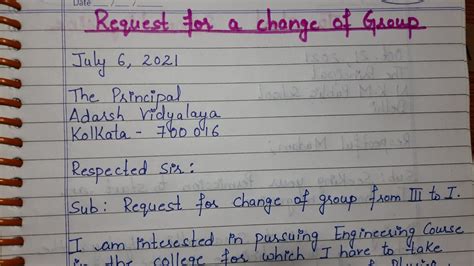 Date ___/___/___
Request for a change of Group
July 6, 2021
The Principal
Adarsh Vidyalaya
Kolkata - 700 016
Respected Sir:
Sub: Request for change of group from III to I.
I am interested in pursuing Engineering Course
in the college for which I have to take